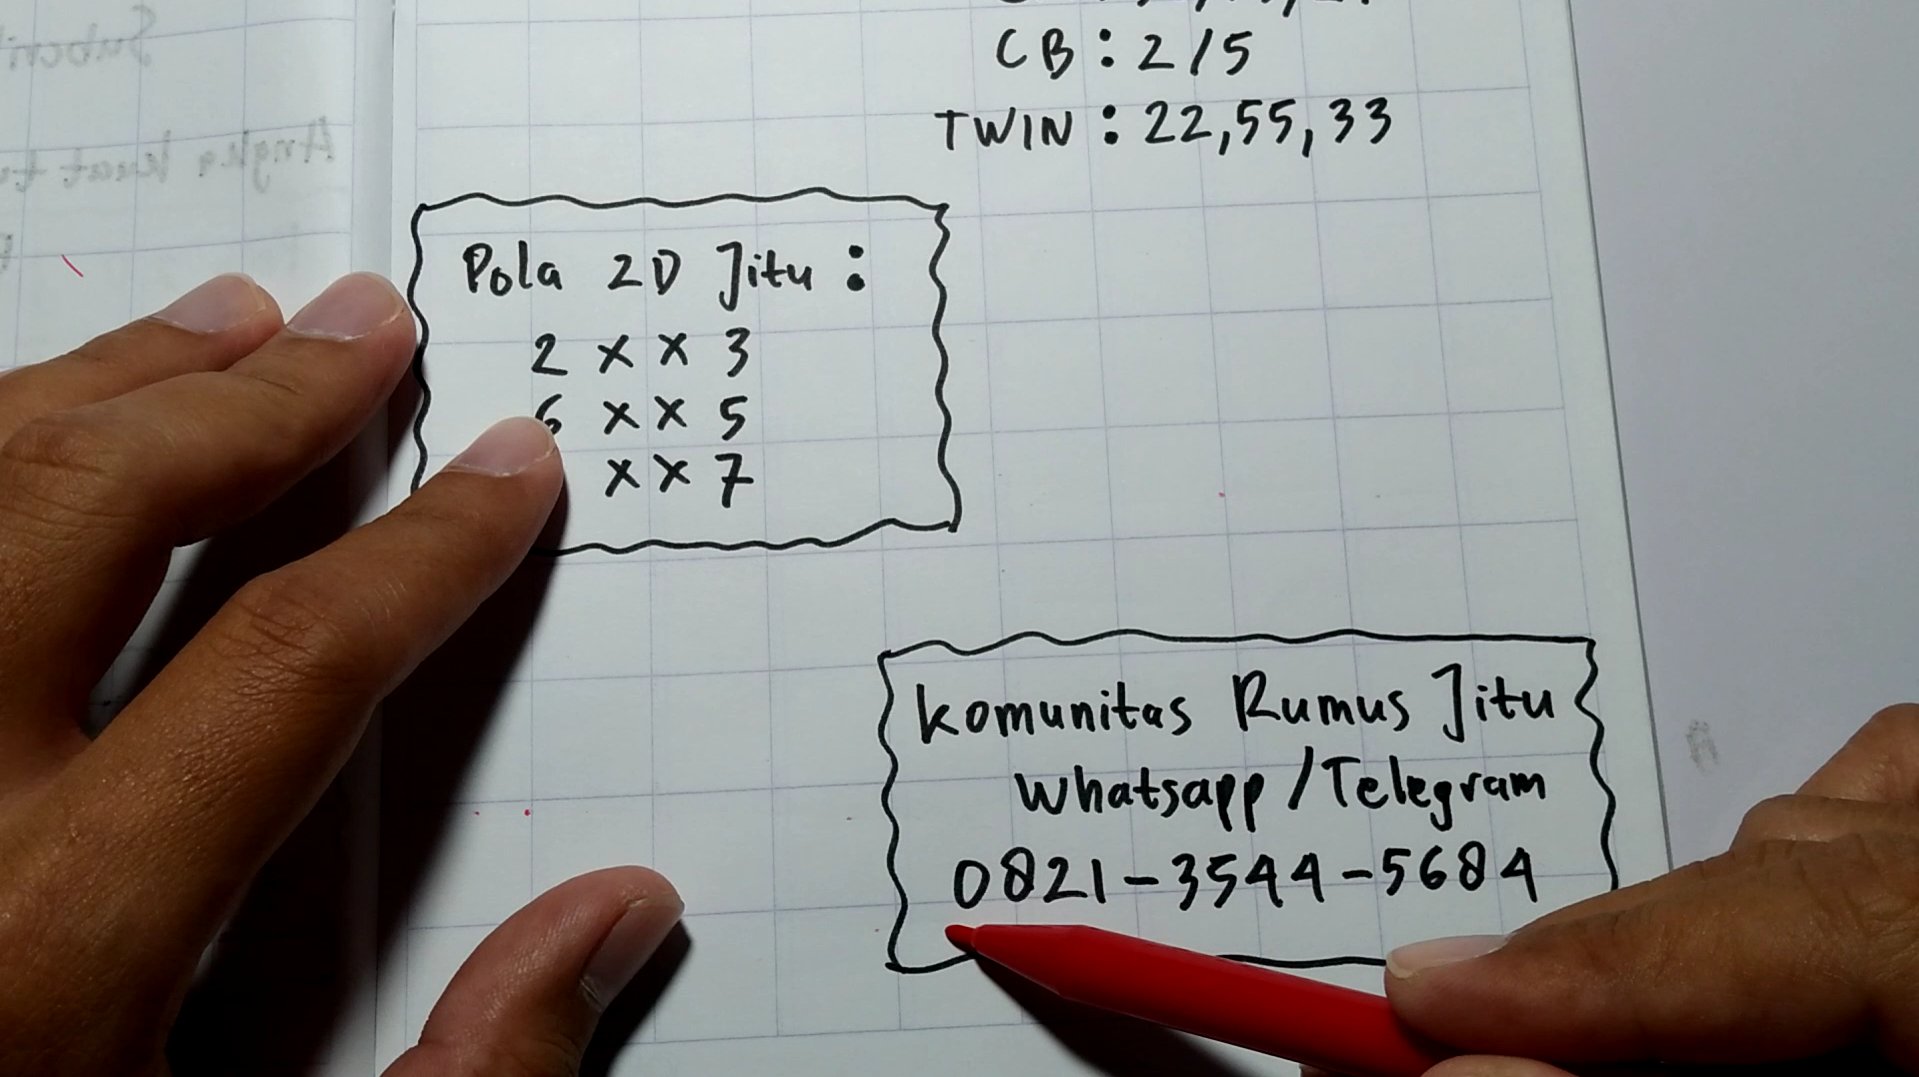 CB : 2/5
TWIN : 22,55,33
Pola 2D Jitu :
2 x x 3
6 x x 5
x x 7
Komunitas Rumus Jitu
Whatsapp/Telegram
0821-3544-5684